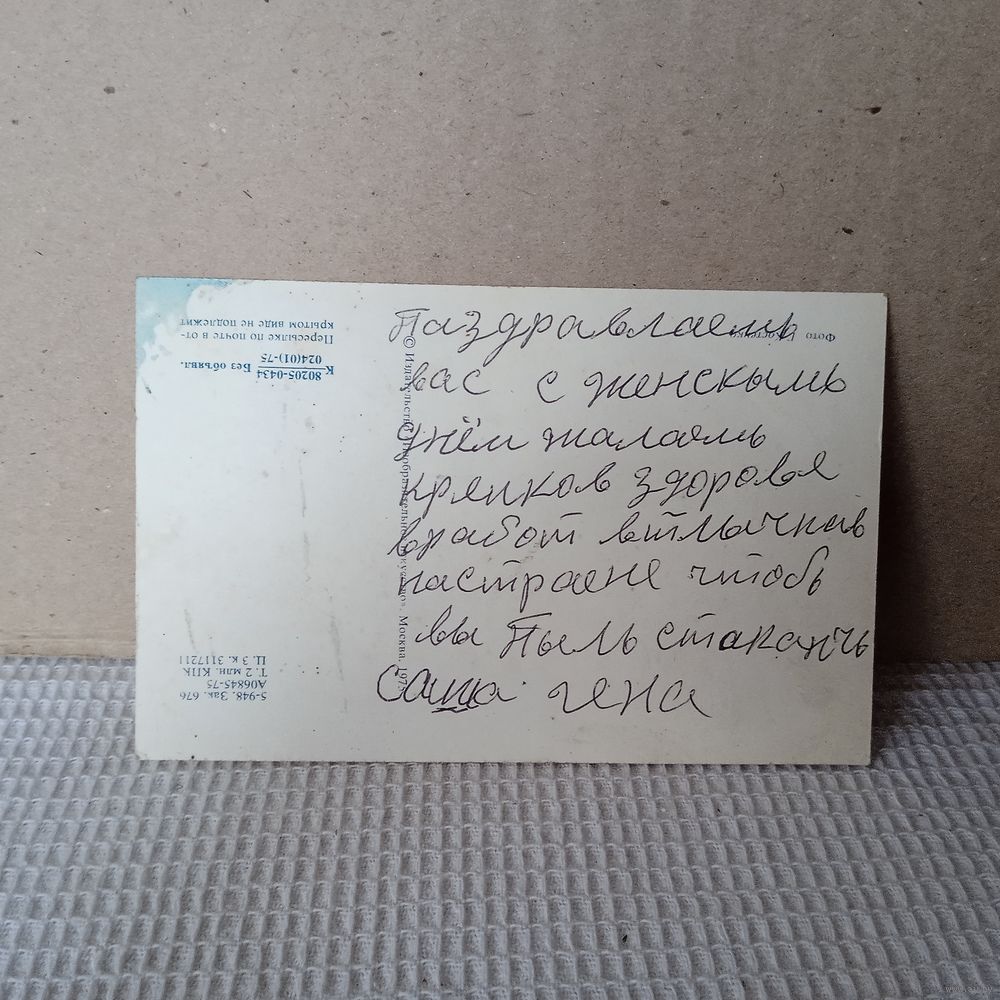 Паздравлаемь
вас с женскымь
днём жалаемь
крепков здоровья
вработ втлычнав
настраене чтобь
вы Пыль стаканчь
Саша гена
Фото
© Издательство «Изобразительное искусство». Москва. 1975
Пересылке по почте в от-
крытом виде не подлежит
К 80205-0434
024(01)-75 Без объявл.
5-948. Зак. 676
А06845-75
Т. 2 млн. КПК
Ц. 3 к. 3117211